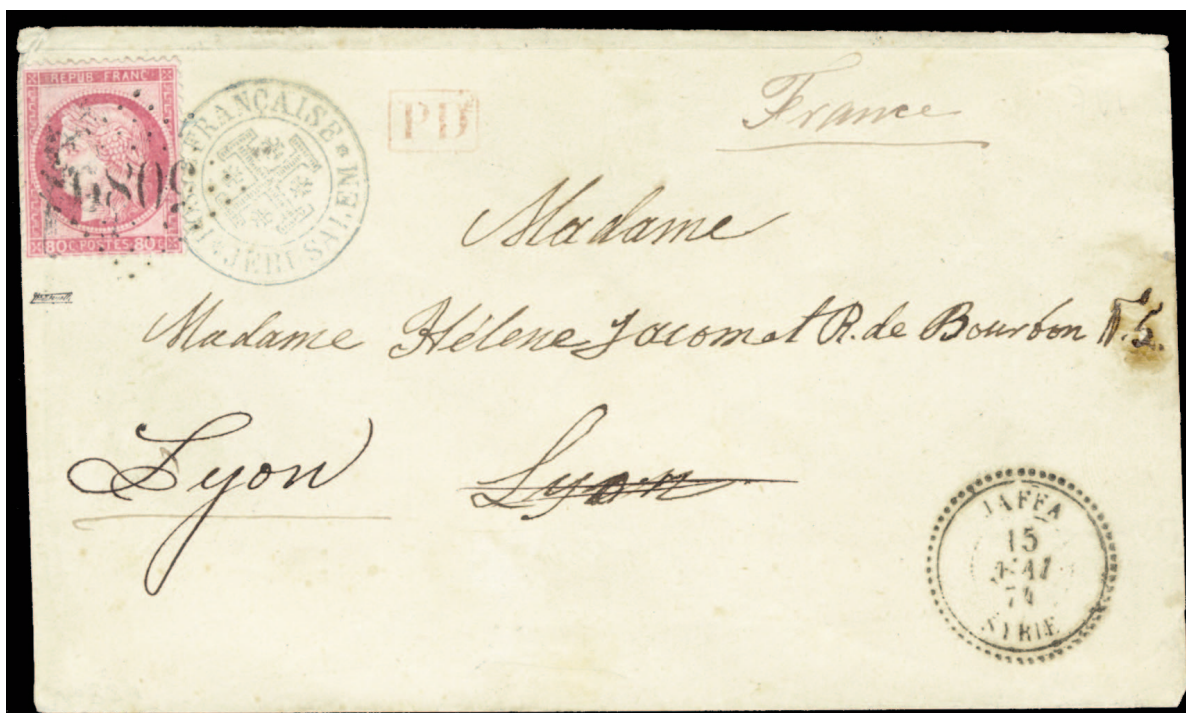 REPUB FRANC
80 C POSTES 80 C
5089
POSTE FRANÇAISE * JÉRUSALEM *
PD
France
Madame
Madame Hélène Jacomet R. de Bourbon
Lyon Lyon
JAFFA
15
MAI
74
SYRIE